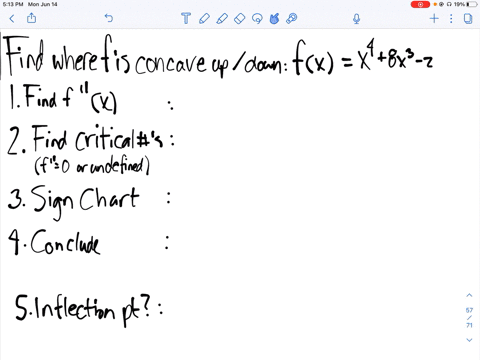 5:13 PM Mon Jun 14
19%
Find where f is concave up/down: f(x) = x⁴+8x³-2
1. Find f"(x) :
2. Find critical #'s :
(f"=0 or undefined)
3. Sign Chart :
4. Conclude :
5. Inflection pt? :
57
/
71